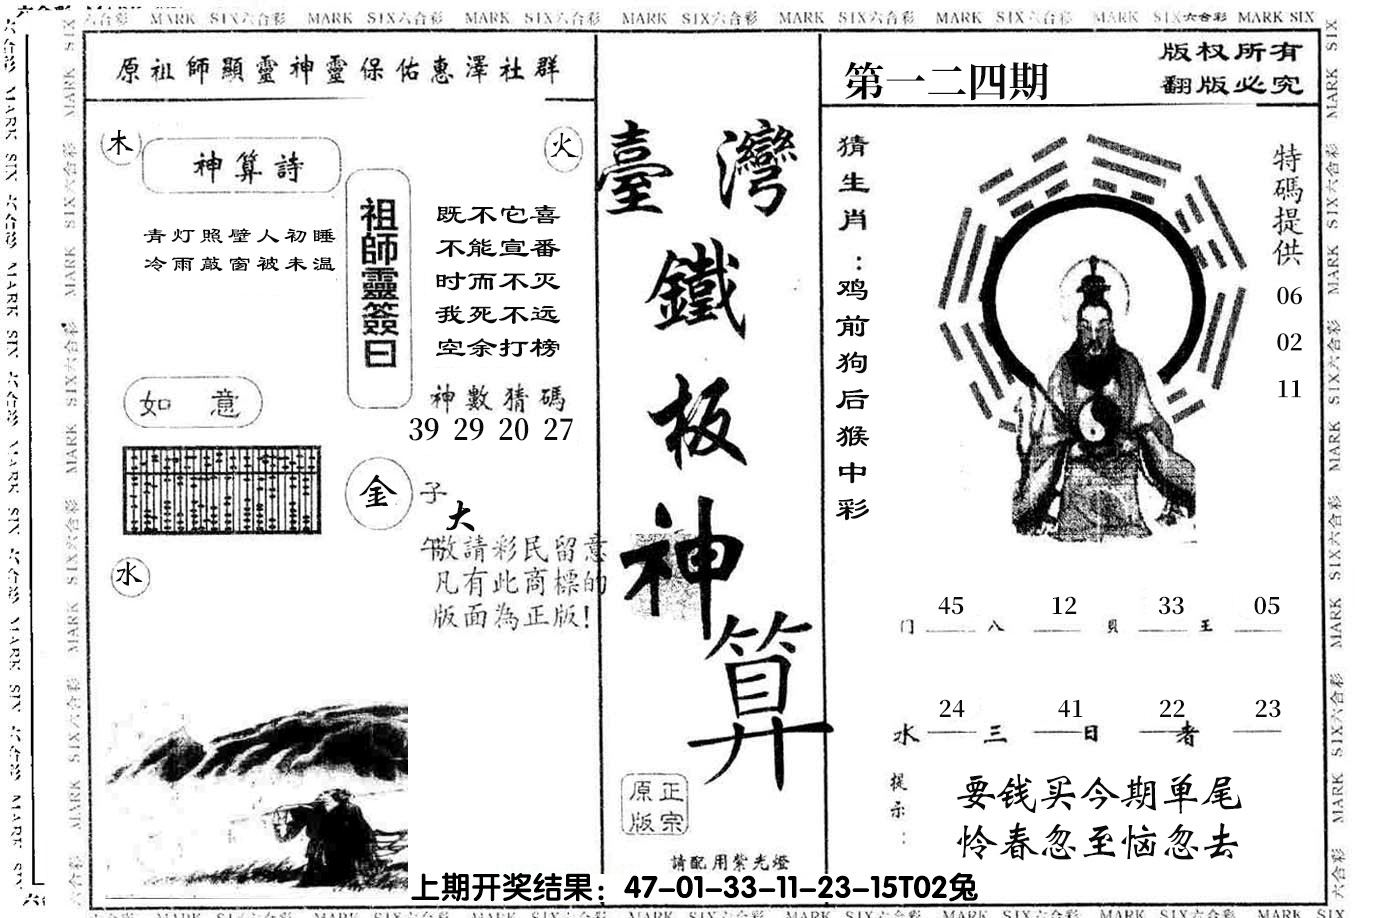 六合彩 MARK SIX六合彩 MARK SIX六合彩 MARK SIX六合彩 MARK SIX六合彩 MARK SIX六合彩 MARK SIX六合彩 MARK SIX六合彩 MARK SIX
原祖師顯靈神靈保佑惠澤社群
木
火
神算詩
青灯照壁人初睡
冷雨敲窗被未温
祖師靈簽曰
既不它喜
不能宣番
时而不灭
我死不远
空余打榜
神數猜碼
39 29 20 27
如 意
金
子
大
午
敬請彩民留意
凡有此商標的
版面為正版!
水
臺灣
鐵
板
神
算
正宗
原版
請配用紫光燈
第一二四期
版权所有
翻版必究
猜生肖:鸡前狗后猴中彩
特碼提供
06
02
11
45 12 33 05
门 八 貝 王
24 41 22 23
水 三 日 者
提示:
要钱买今期单尾
怜春忽至恼忽去
上期开奖结果：47-01-33-11-23-15T02兔